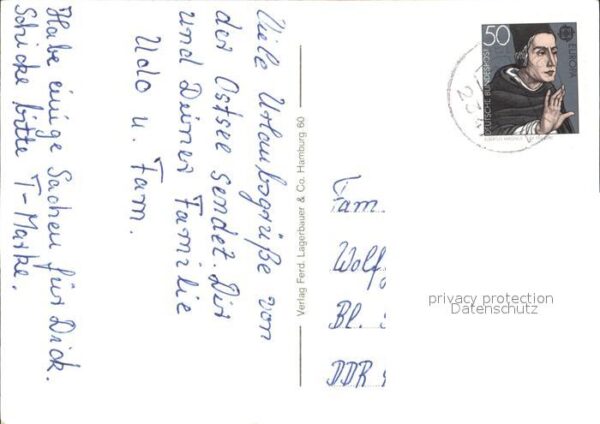 Viele Urlaubsgrüße von
der Ostsee sendet Dir
und Deiner Familie
Udo u. Fam.
Habe einige Sachen für Dich.
Schicke bitte T-Marke.
Verlag Ferd. Lagerbauer & Co. Hamburg 60
50
DEUTSCHE BUNDESPOST
EUROPA
23
Fam.
Wolfg
Bl.
DDR
privacy protection
Datenschutz